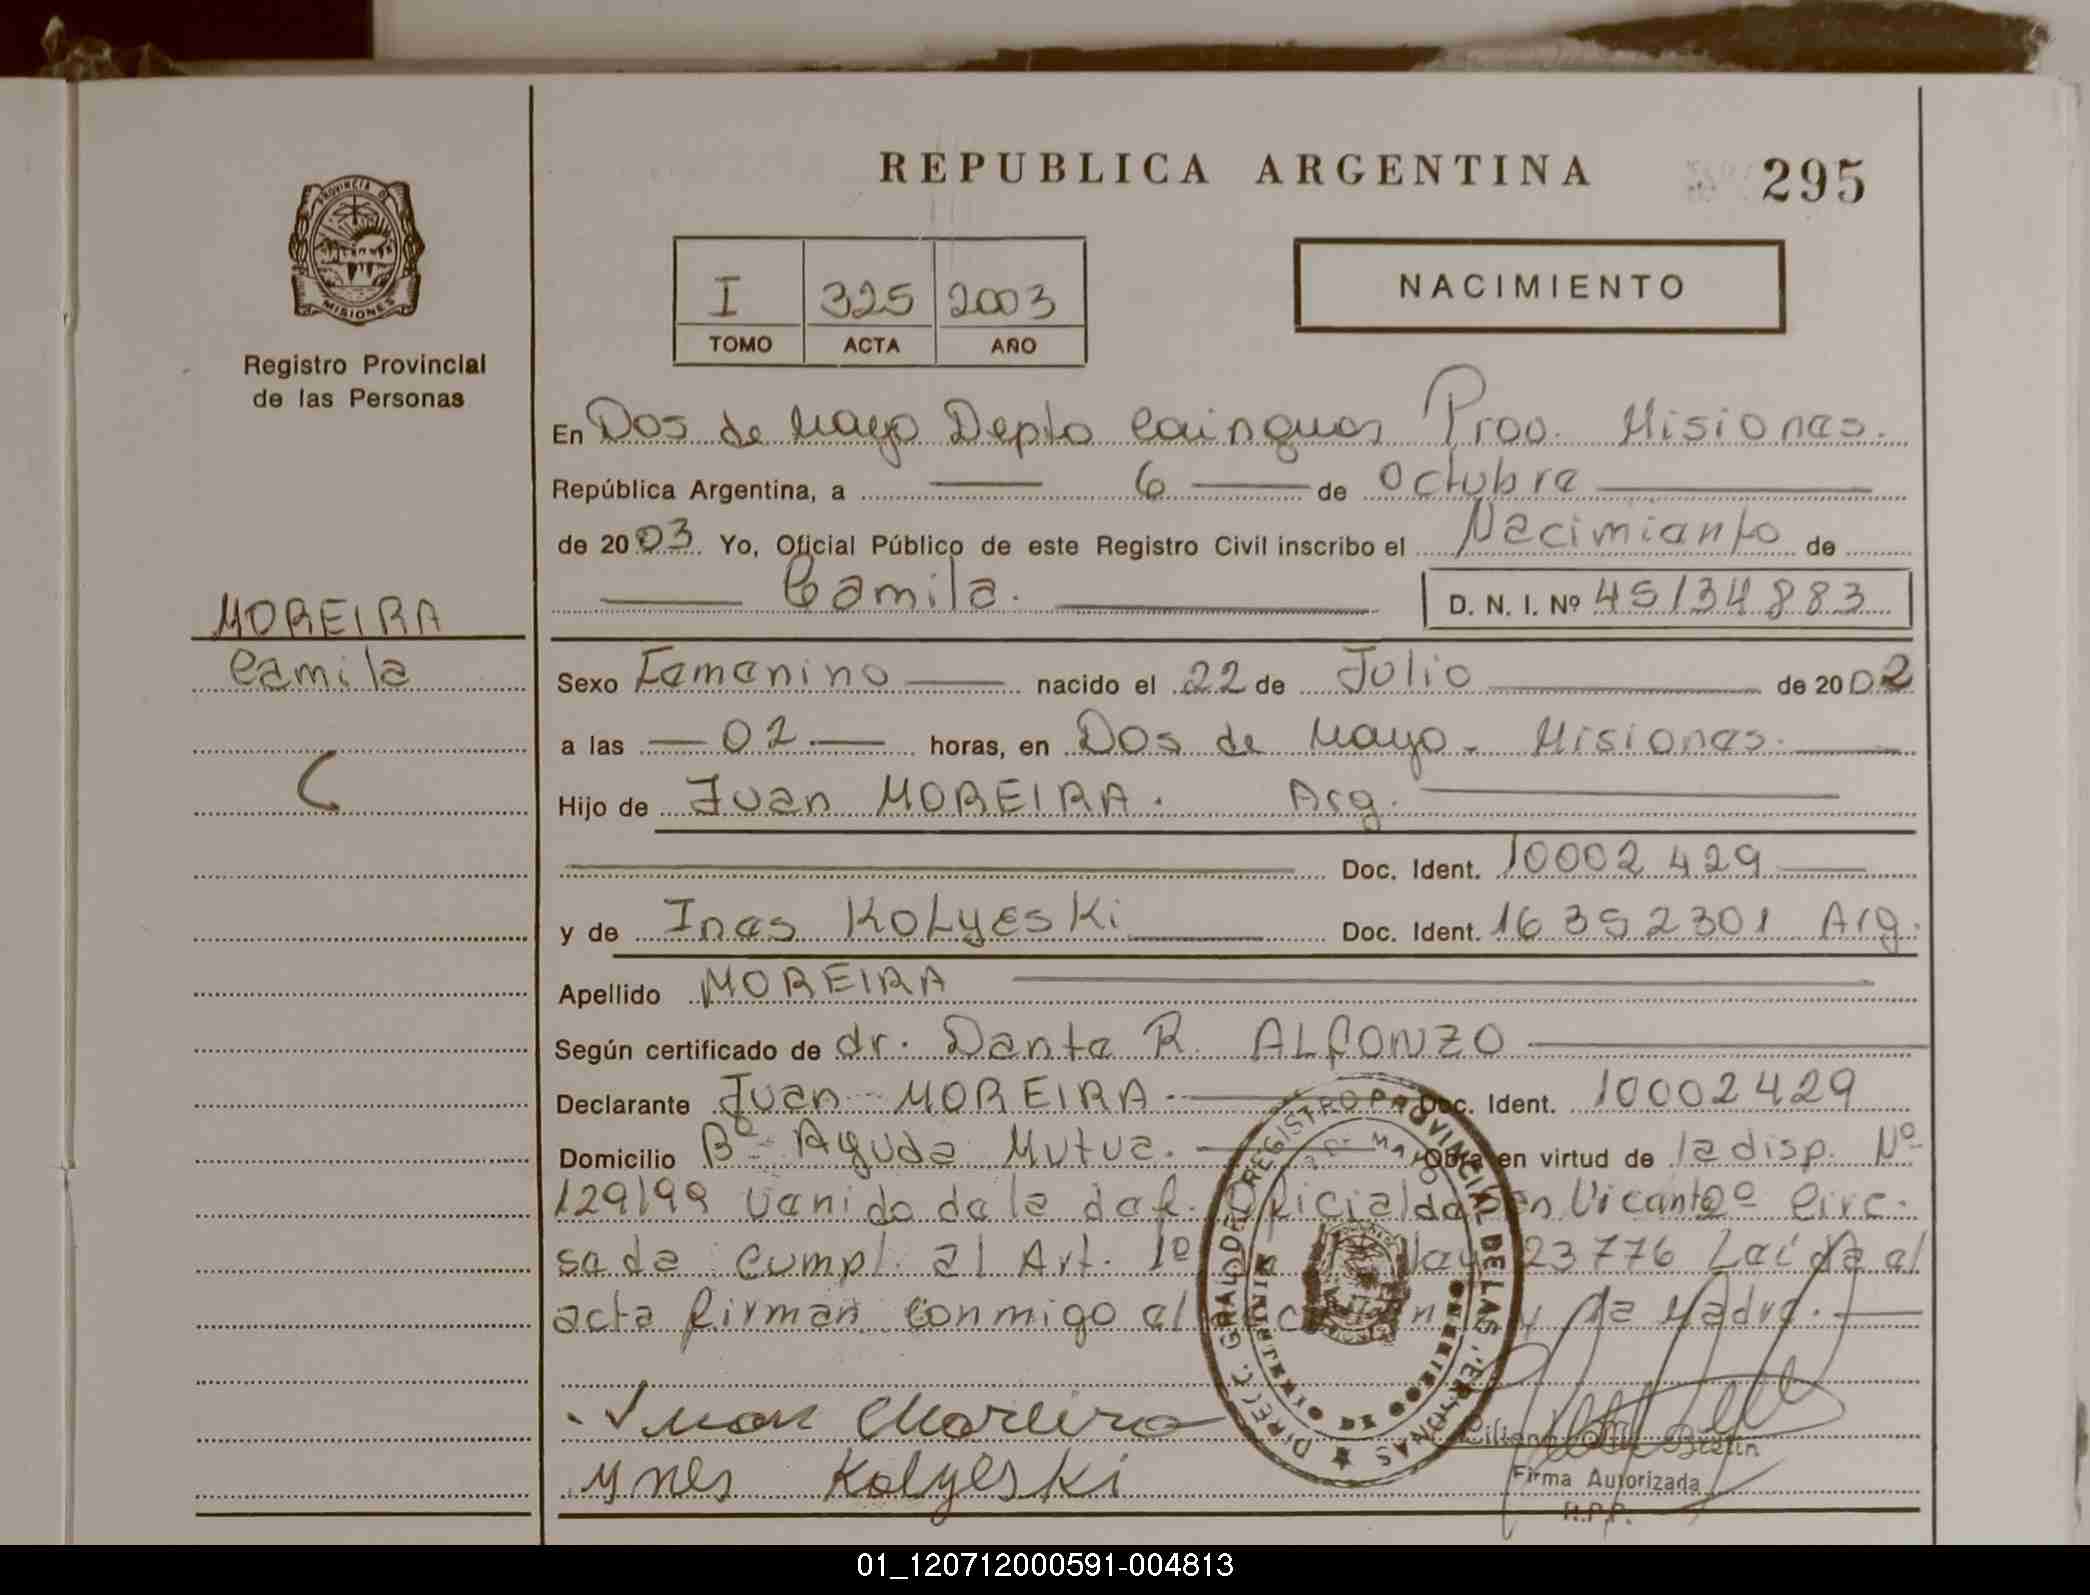 REPUBLICA ARGENTINA
295
PROVINCIA D
MISIONES
Registro Provincial
de las Personas
I 325 2003
TOMO ACTA AÑO
NACIMIENTO
En Dos de Mayo Depto Cainguas Prov. Misiones.
República Argentina, a 6 de Octubre
de 2003 Yo, Oficial Público de este Registro Civil inscribo el Nacimiento de
Camila. D. N. I. Nº 45134883
MOREIRA
Camila
Sexo Femenino nacido el 22 de Julio de 2002
a las 02 horas, en Dos de Mayo. Misiones.
Hijo de Juan MOREIRA. Arg.
Doc. Ident. 10002429
y de Ines KOLyESKi Doc. Ident. 16352301 Arg.
Apellido MOREIRA
Según certificado de dr. Dante R. ALFONZO
Declarante Juan MOREIRA. Doc. Ident. 10002429
Domicilio Bº Ayuda Mutua. Obra en virtud de la disp. Nº
129/99 venida de la def. Oficial de en Vicente Circ.
sada cumpl. al Art. 1º Ley 23776 Leída el
acta firman conmigo el y la Madre.
DIRECC. GRAL DE REGISTRO PROVINCIAL DE LAS PERSONAS
Juan Moreira
Ynes Kolyeski
Firma Autorizada
R.P.P.
01_120712000591-004813